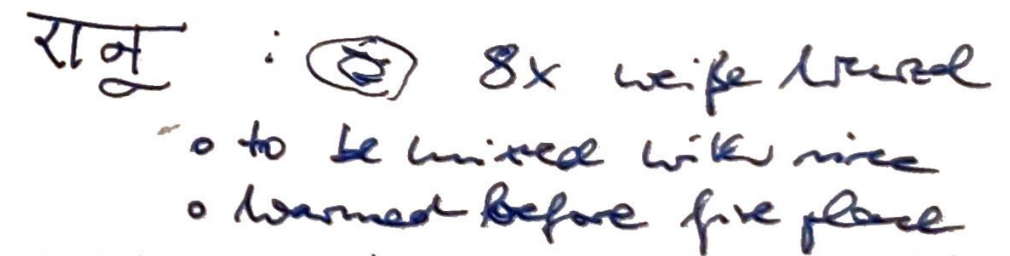 रानु : 8x weiße Wurzel
o to be mixed with rice
o warmed before fire place